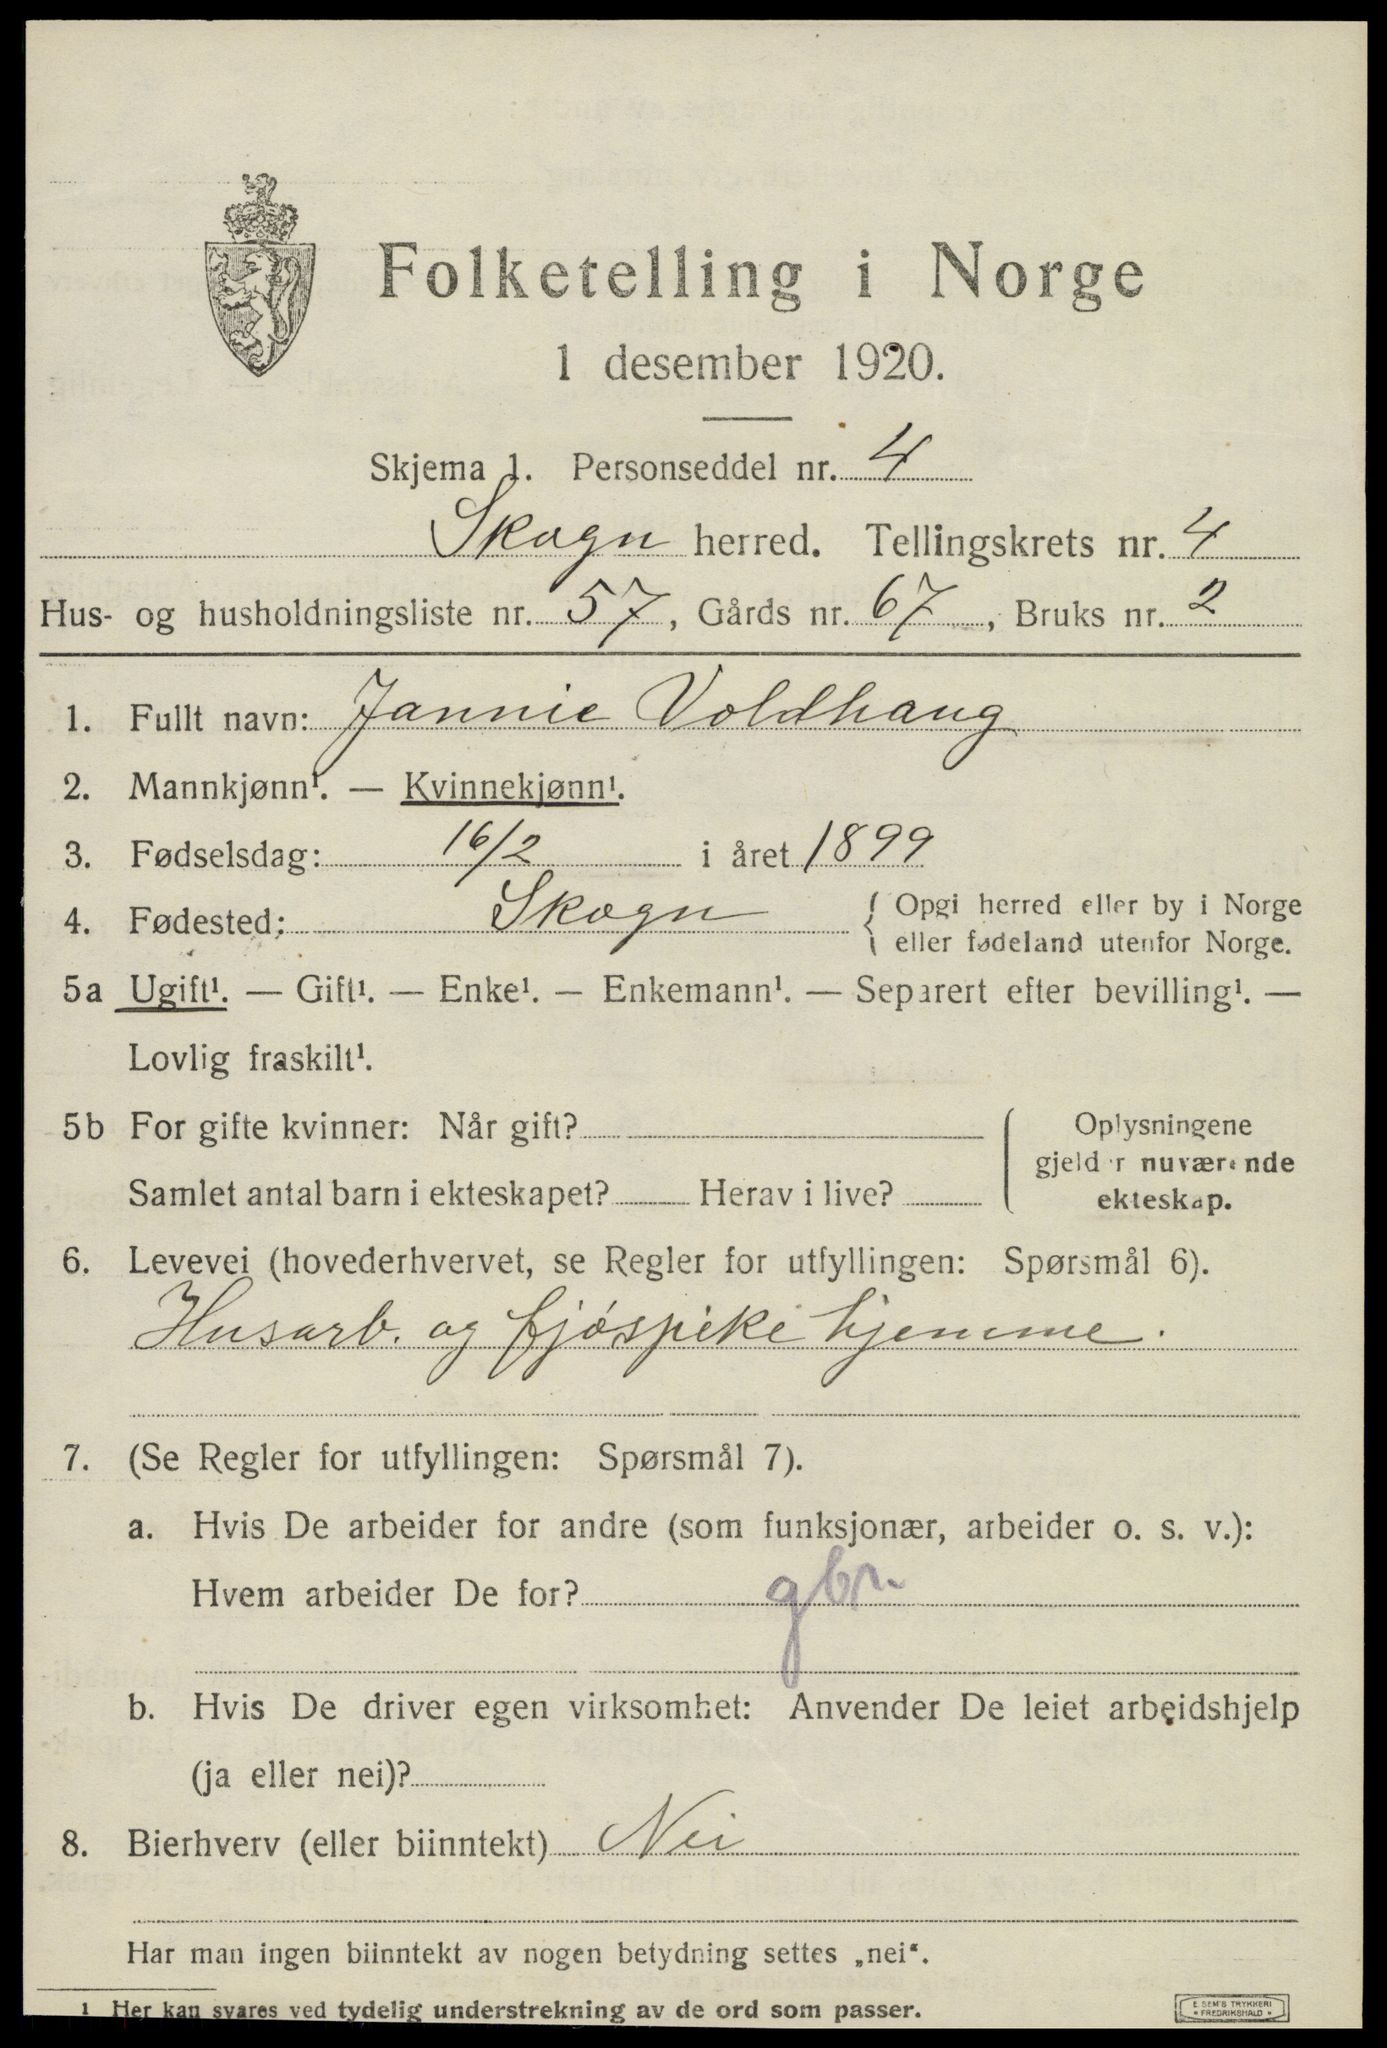 Folketelling i Norge
1 desember 1920.
Skjema 1. Personseddel nr. 4
Skogn herred. Tellingskrets nr. 4
Hus- og husholdningsliste nr. 57, Gårds nr. 67, Bruks nr. 2
1. Fullt navn: Jannie Voldhaug
2. Mannkjønn¹. — Kvinnekjønn¹.
3. Fødselsdag: 16/2 i året 1899
4. Fødested: Skogn { Opgi herred eller by i Norge
eller fødeland utenfor Norge.
5a Ugift¹. — Gift¹. — Enke¹. — Enkemann¹. — Separert efter bevilling¹. —
Lovlig fraskilt¹.
5b For gifte kvinner: Når gift?
Samlet antal barn i ekteskapet? Herav i live?
Oplysningene
gjelder nuværende
ekteskap.
6. Levevei (hovederhvervet, se Regler for utfyllingen: Spørsmål 6).
Husarb. og fjóspike hjemme.
7. (Se Regler for utfyllingen: Spørsmål 7).
a. Hvis De arbeider for andre (som funksjonær, arbeider o. s. v.):
Hvem arbeider De for? gbr.
b. Hvis De driver egen virksomhet: Anvender De leiet arbeidshjelp
(ja eller nei)?
8. Bierhverv (eller biinntekt) Nei
Har man ingen biinntekt av nogen betydning settes „nei“.
¹ Her kan svares ved tydelig understrekning av de ord som passer.
E. SEM'S TRYKKERI
• FREDRIKSHALD •